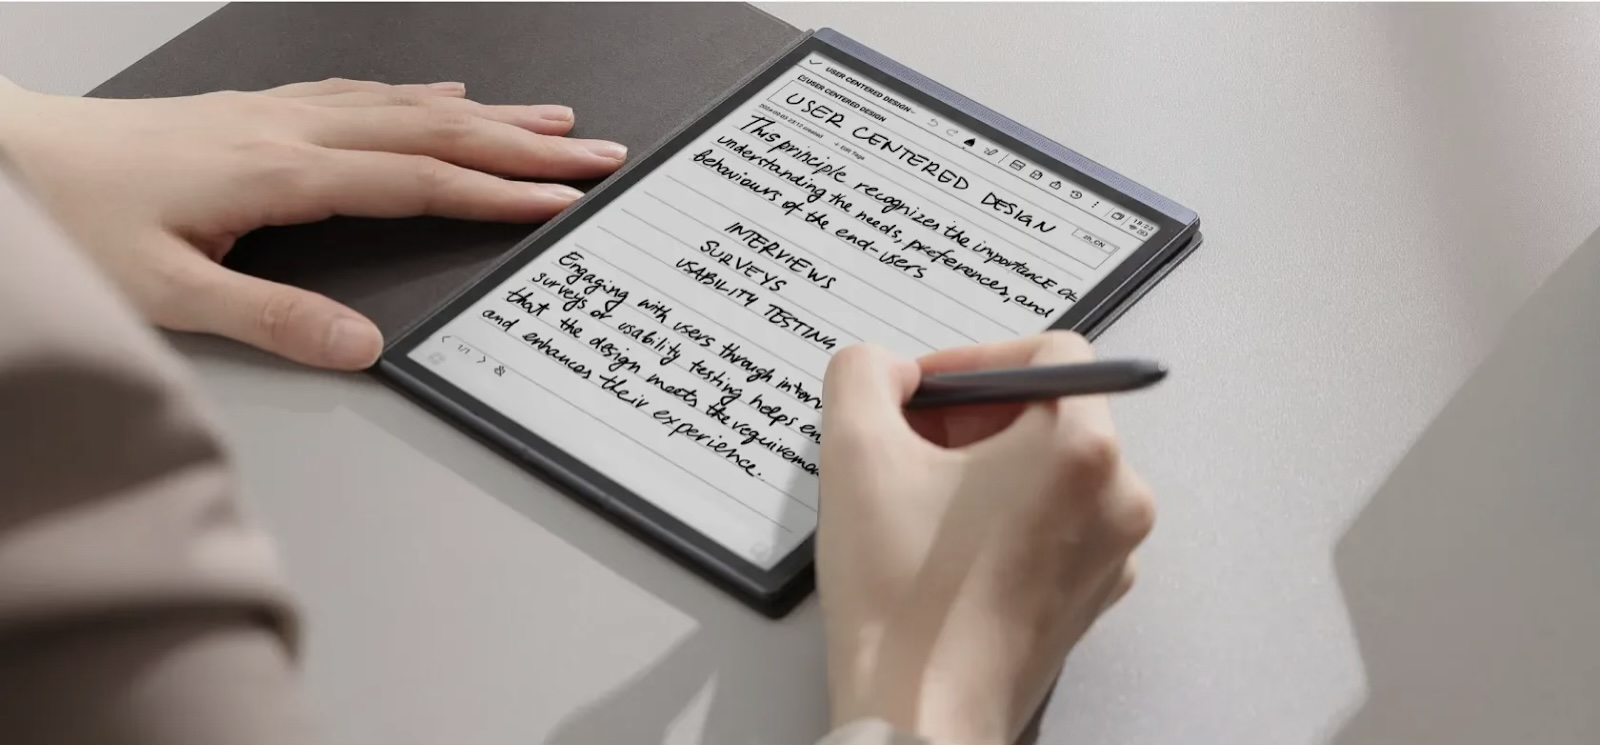 USER CENTERED DESIGN
USER CENTERED DESIGN
18:23
USER CENTERED DESIGN
zh_CN
+ Edit Tags
This principle recognizes the importance of
understanding the needs, preferences, and
behaviours of the end-users
INTERVIEWS
SURVEYS
USABILITY TESTING
Engaging with users through
surveys or usability testing helps
that the design meets the
and enhances their experience.
1/1